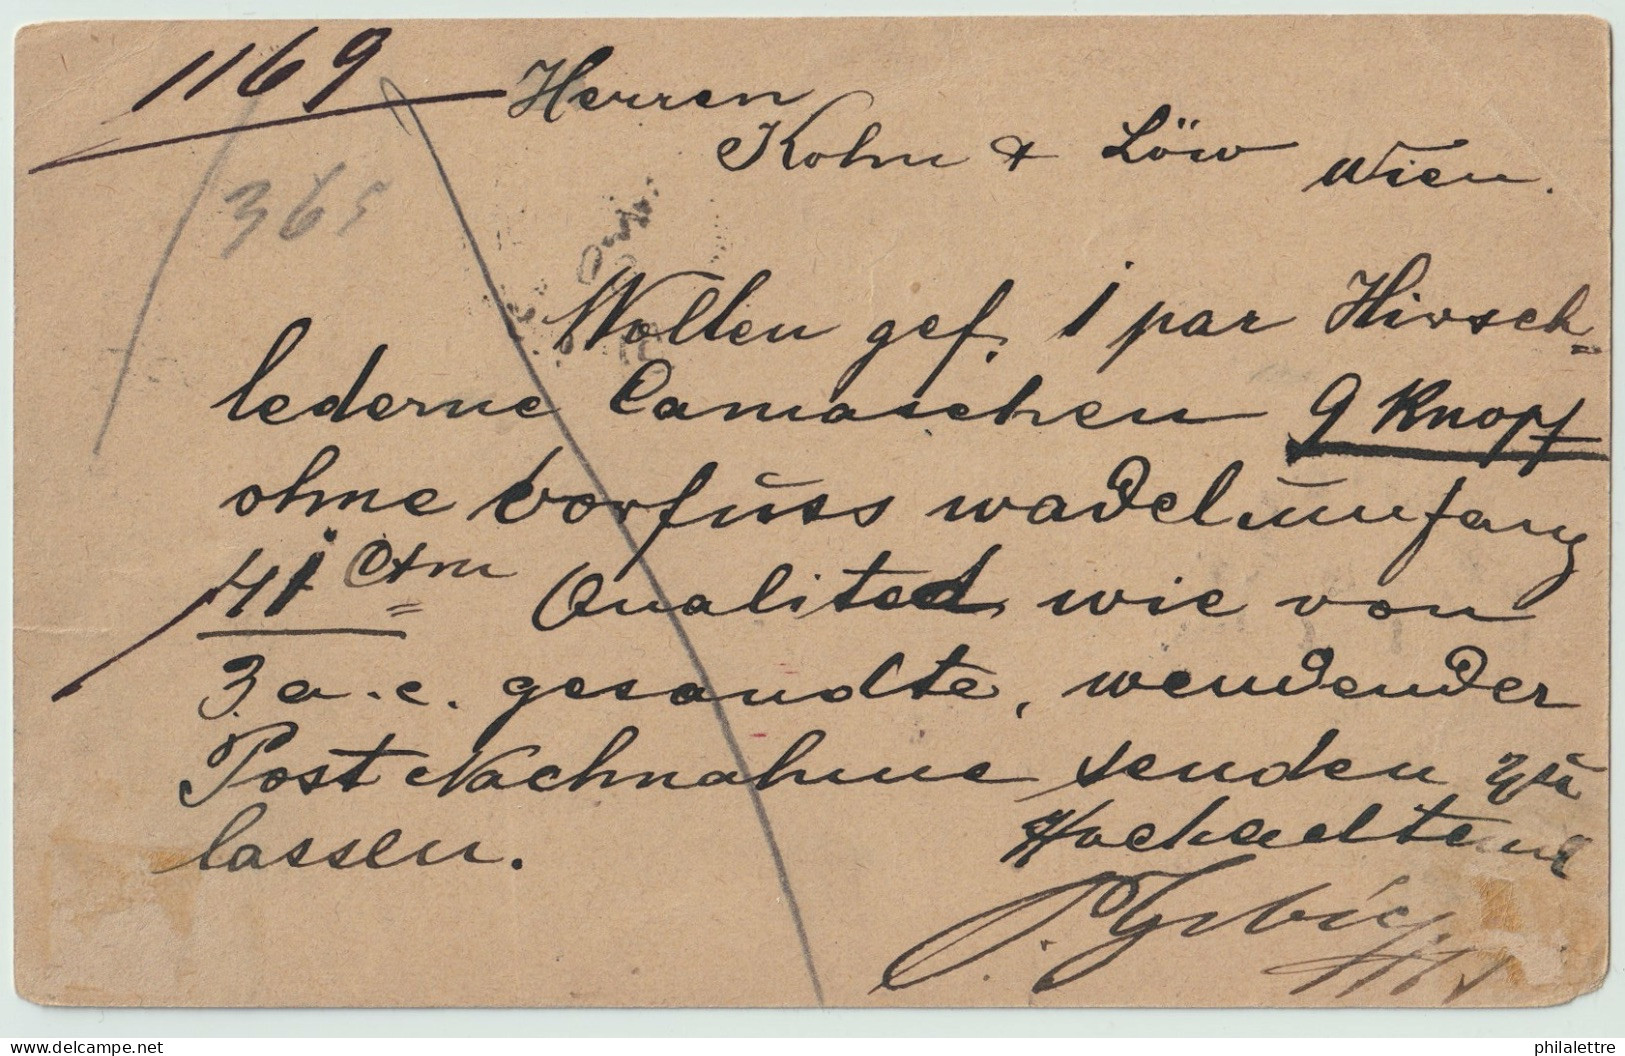 1169
365
Herren
Kohn & Löw Wien.
Wollen gef. 1 par Hirsch=
lederne Camaschen 9 Knopf
ohne Vorfuss wadelumfang
41 Ctm = Qualited wie von
3. a. c. gesandte, wendender
Post Nachnahme senden zu
lassen.
Hochachtend
philalettre
www.delcampe.net